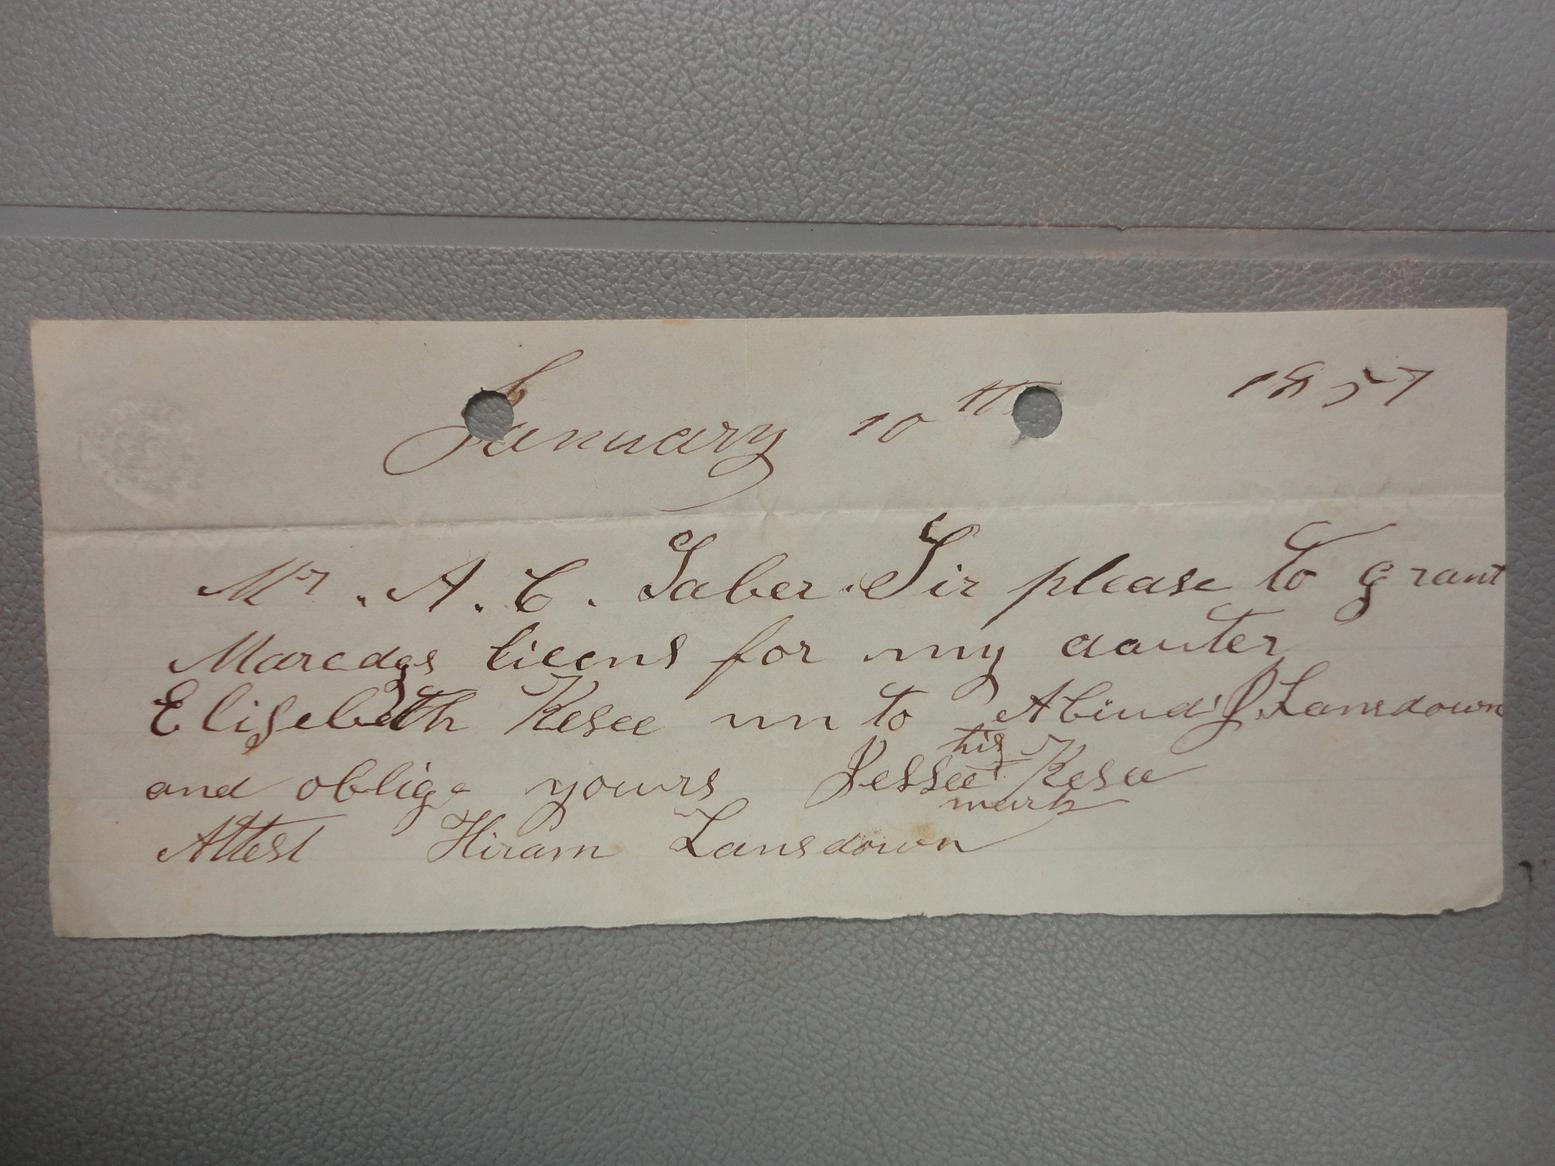 January 10th 1857
Mr. A. C. Saber. Sir please to grant
Maredgs licens for my dauter
Elisebeth Kesee un to Abind J. Lansdown
and oblige yours Jessee his + mark Kesee
Attest Hiram Lansdown